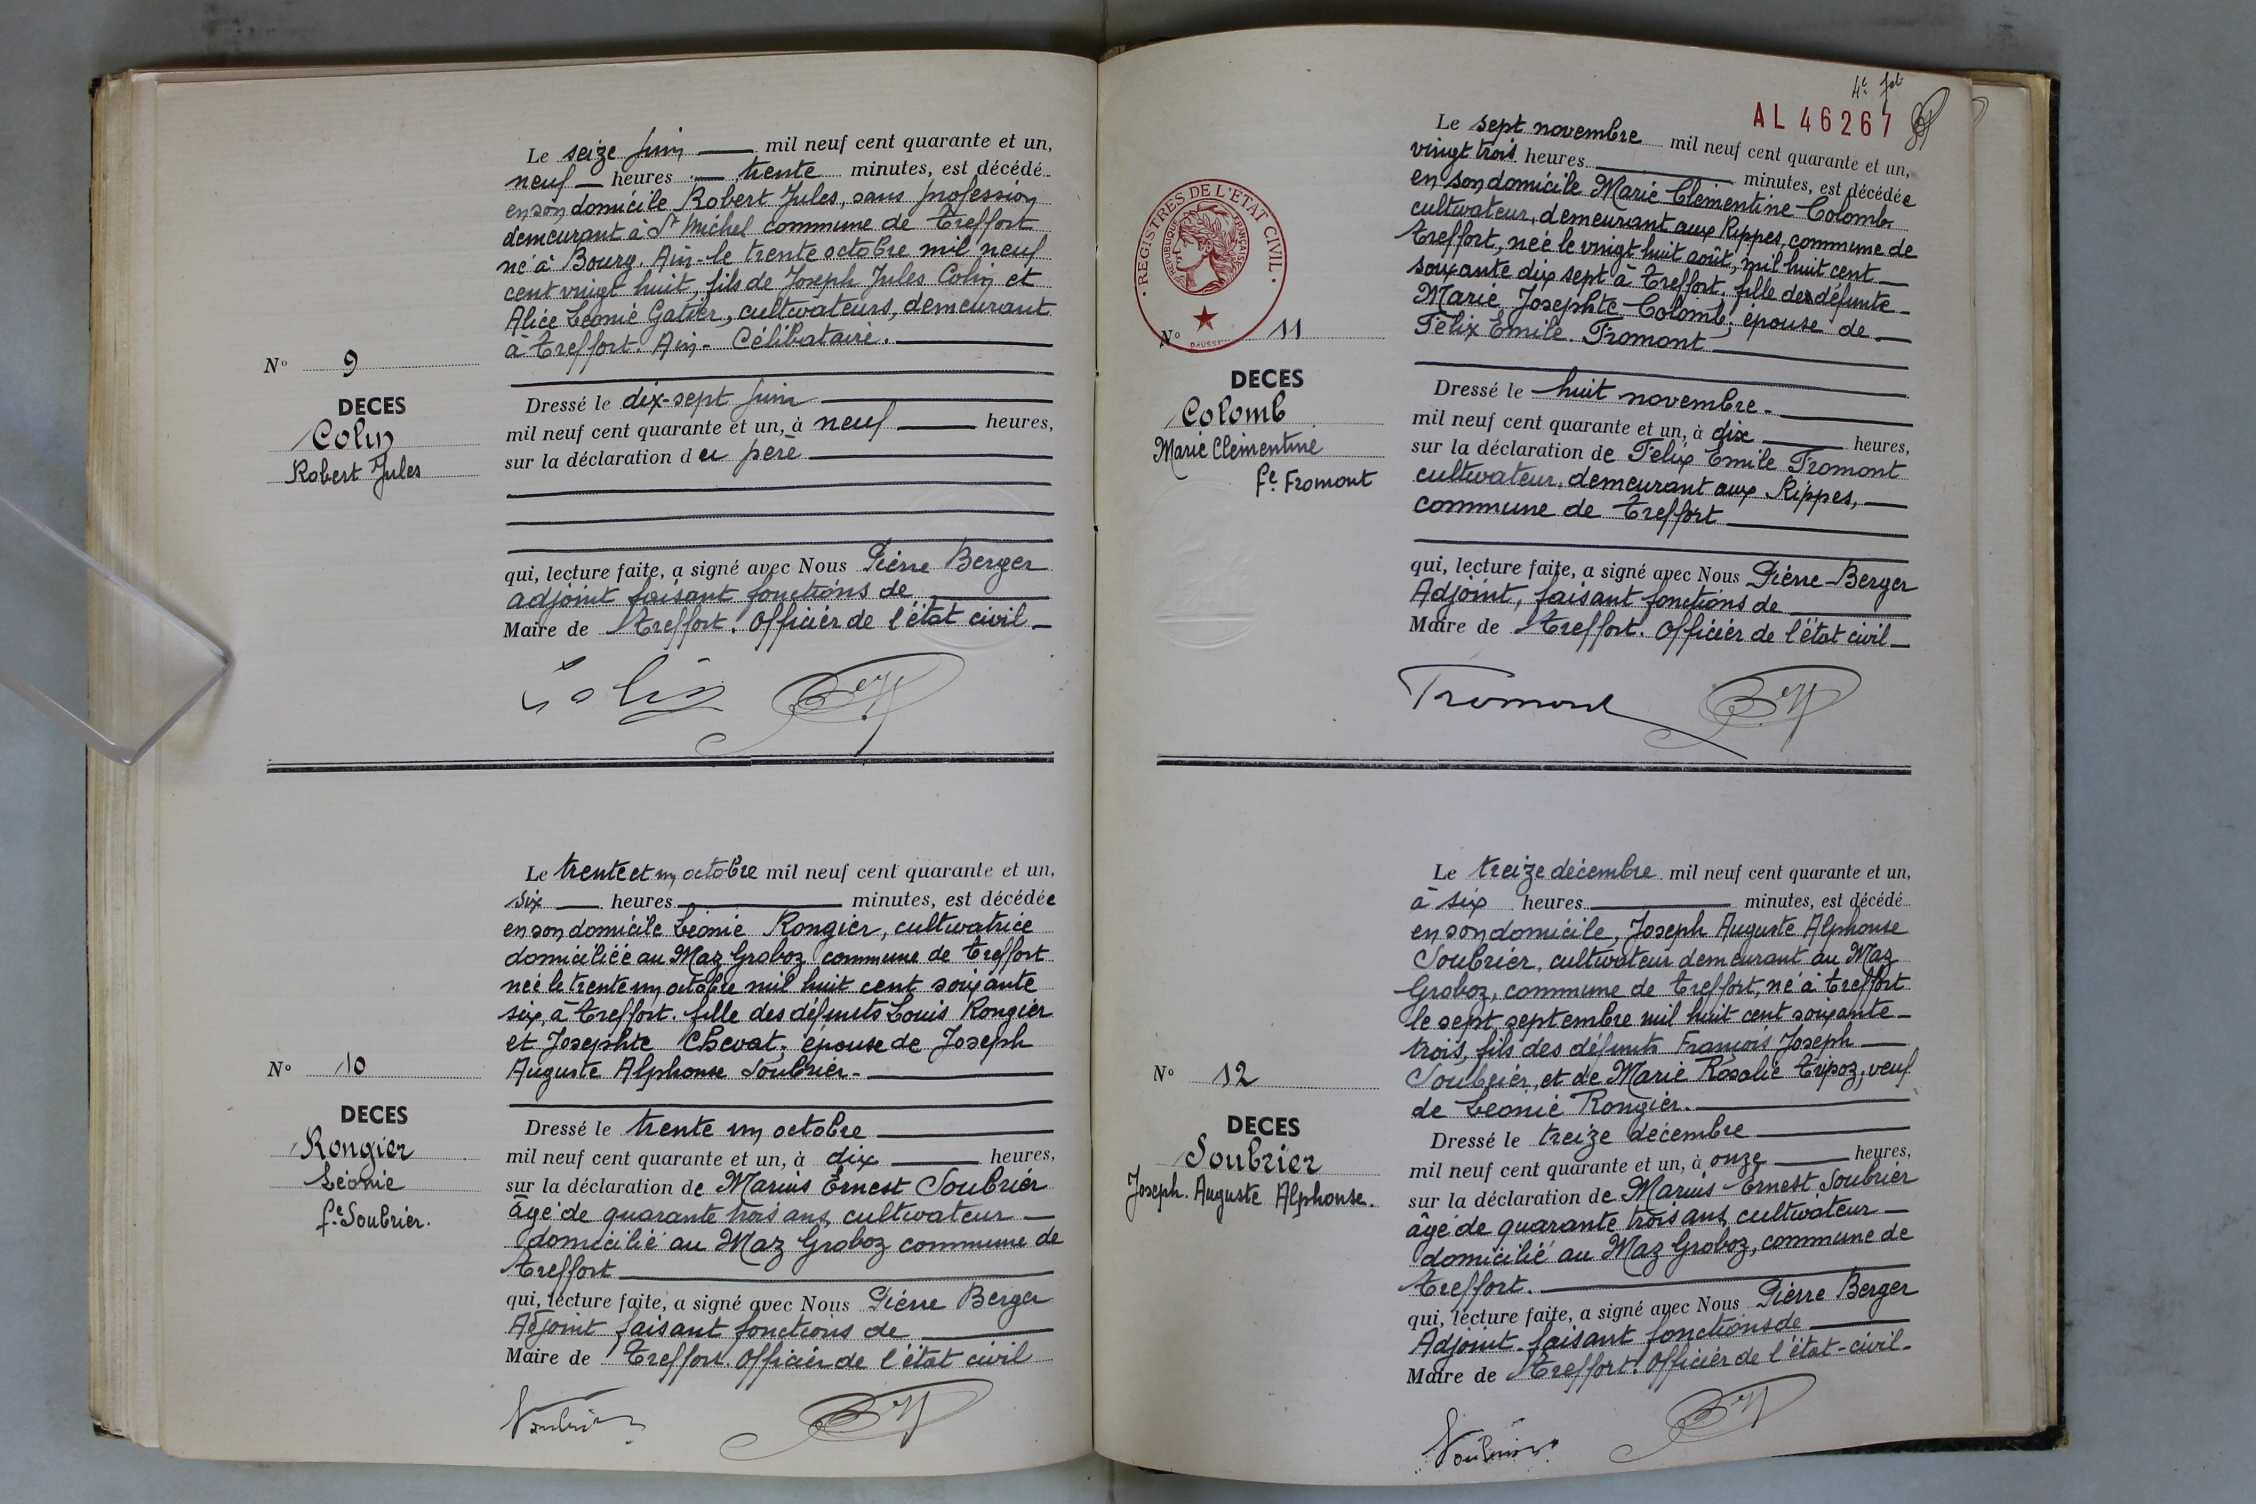 Le seize juin mil neuf cent quarante et un,
neuf heures trente minutes, est décédé
en son domicile Robert Jules, sans profession
demeurant à St Michel commune de Treffort
né à Bourg. Ain- le trente octobre mil neuf
cent vingt huit, fils de Joseph Jules Colin et
Alice Léonie Gatier, cultivateurs, demeurant
à Treffort. Ain- Célibataire.
N° 9
DECES
Colin
Robert Jules
Dressé le dix-sept juin
mil neuf cent quarante et un, à neuf heures,
sur la déclaration du père
qui, lecture faite, a signé avec Nous Pierre Berger
adjoint faisant fonctions de
Maire de Treffort. Officier de l'état civil
Colin
Le trente et un octobre mil neuf cent quarante et un,
six heures minutes, est décédée
en son domicile Léonie Rongier, cultivatrice
domiciliée au Maz Groboz commune de Treffort
née le trente un octobre mil huit cent soixante
six, à Treffort. fille des défunts Louis Rongier
et Josephte Chevat, épouse de Joseph
Auguste Alphonse Soubrier-
N° 10
DECES
Rongier
Léonie
fe Soubrier.
Dressé le trente un octobre
mil neuf cent quarante et un, à dix heures,
sur la déclaration de Marius Ernest Soubrier
âgé de quarante trois ans, cultivateur
domicilié au Maz Groboz commune de
Treffort
qui, lecture faite, a signé avec Nous Pierre Berger
Adjoint faisant fonctions de
Maire de Treffort. Officier de l'état civil
Soubrier
4e
AL 46267
Le sept novembre mil neuf cent quarante et un,
vingt trois heures minutes, est décédée
en son domicile Marie Clémentine Colomb
cultivateur, demeurant aux Rippes, commune de
Treffort, née le vingt huit août, mil huit cent
soixante dix sept à Treffort, fille de défunte
Marie Josephte Colomb, épouse de
Félix Emile Fromont
REGISTRES DE L'ETAT CIVIL
REPUBLIQUE FRANÇAISE
N° 11
DECES
Colomb
Marie Clémentine
fe Fromont
Dressé le huit novembre-
mil neuf cent quarante et un, à dix heures,
sur la déclaration de Félix Emile Fromont
cultivateur, demeurant aux Rippes,
commune de Treffort
qui, lecture faite, a signé avec Nous Pierre Berger
Adjoint, faisant fonctions de
Maire de Treffort. Officier de l'état civil
Fromont
Le treize décembre mil neuf cent quarante et un,
à six heures minutes, est décédé
en son domicile, Joseph Auguste Alphonse
Soubrier, cultivateur demeurant au Maz
Groboz, commune de Treffort, né à Treffort
le sept septembre mil huit cent soixante
trois, fils des défunts François Joseph
Soubrier, et de Marie Rosalie Tripoz, veuf
de Léonie Rongier.
N° 12
DECES
Soubrier
Joseph. Auguste Alphonse.
Dressé le treize décembre
mil neuf cent quarante et un, à onze heures,
sur la déclaration de Marius Ernest Soubrier
âgé de quarante trois ans, cultivateur
domicilié au Maz Groboz, commune de
Treffort.
qui, lecture faite, a signé avec Nous Pierre Berger
Adjoint faisant fonctions de
Maire de Treffort. Officier de l'état-civil-
Soubrier